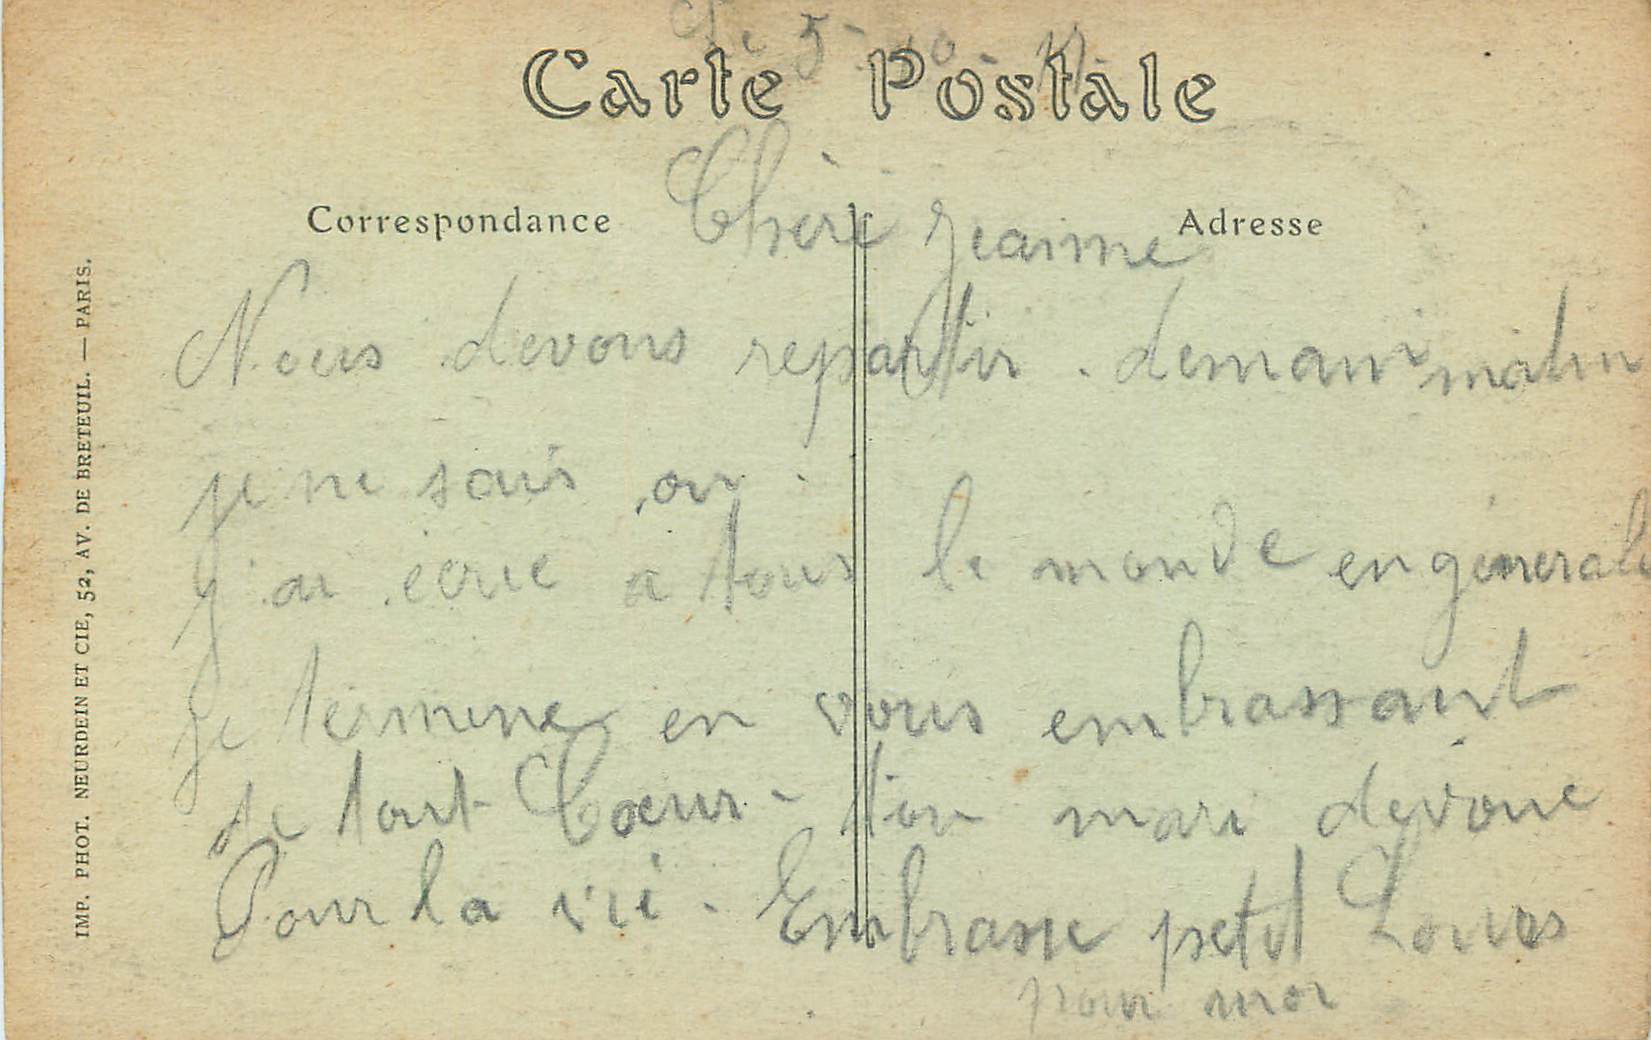 5-10-
Carte Postale
Correspondance
Adresse
Chère Jeanne
Nous devons repartir. demain matin
je ne sais ou.
J'ai ecrie a tous le monde en générale
je termine en vous embrassant
de tout Cœur - ton mari devoue
Pour la vie. Embrasse petit Louis
pour moi
IMP. PHOT. NEURDEIN ET CIE, 52, AV. DE BRETEUIL. — PARIS.